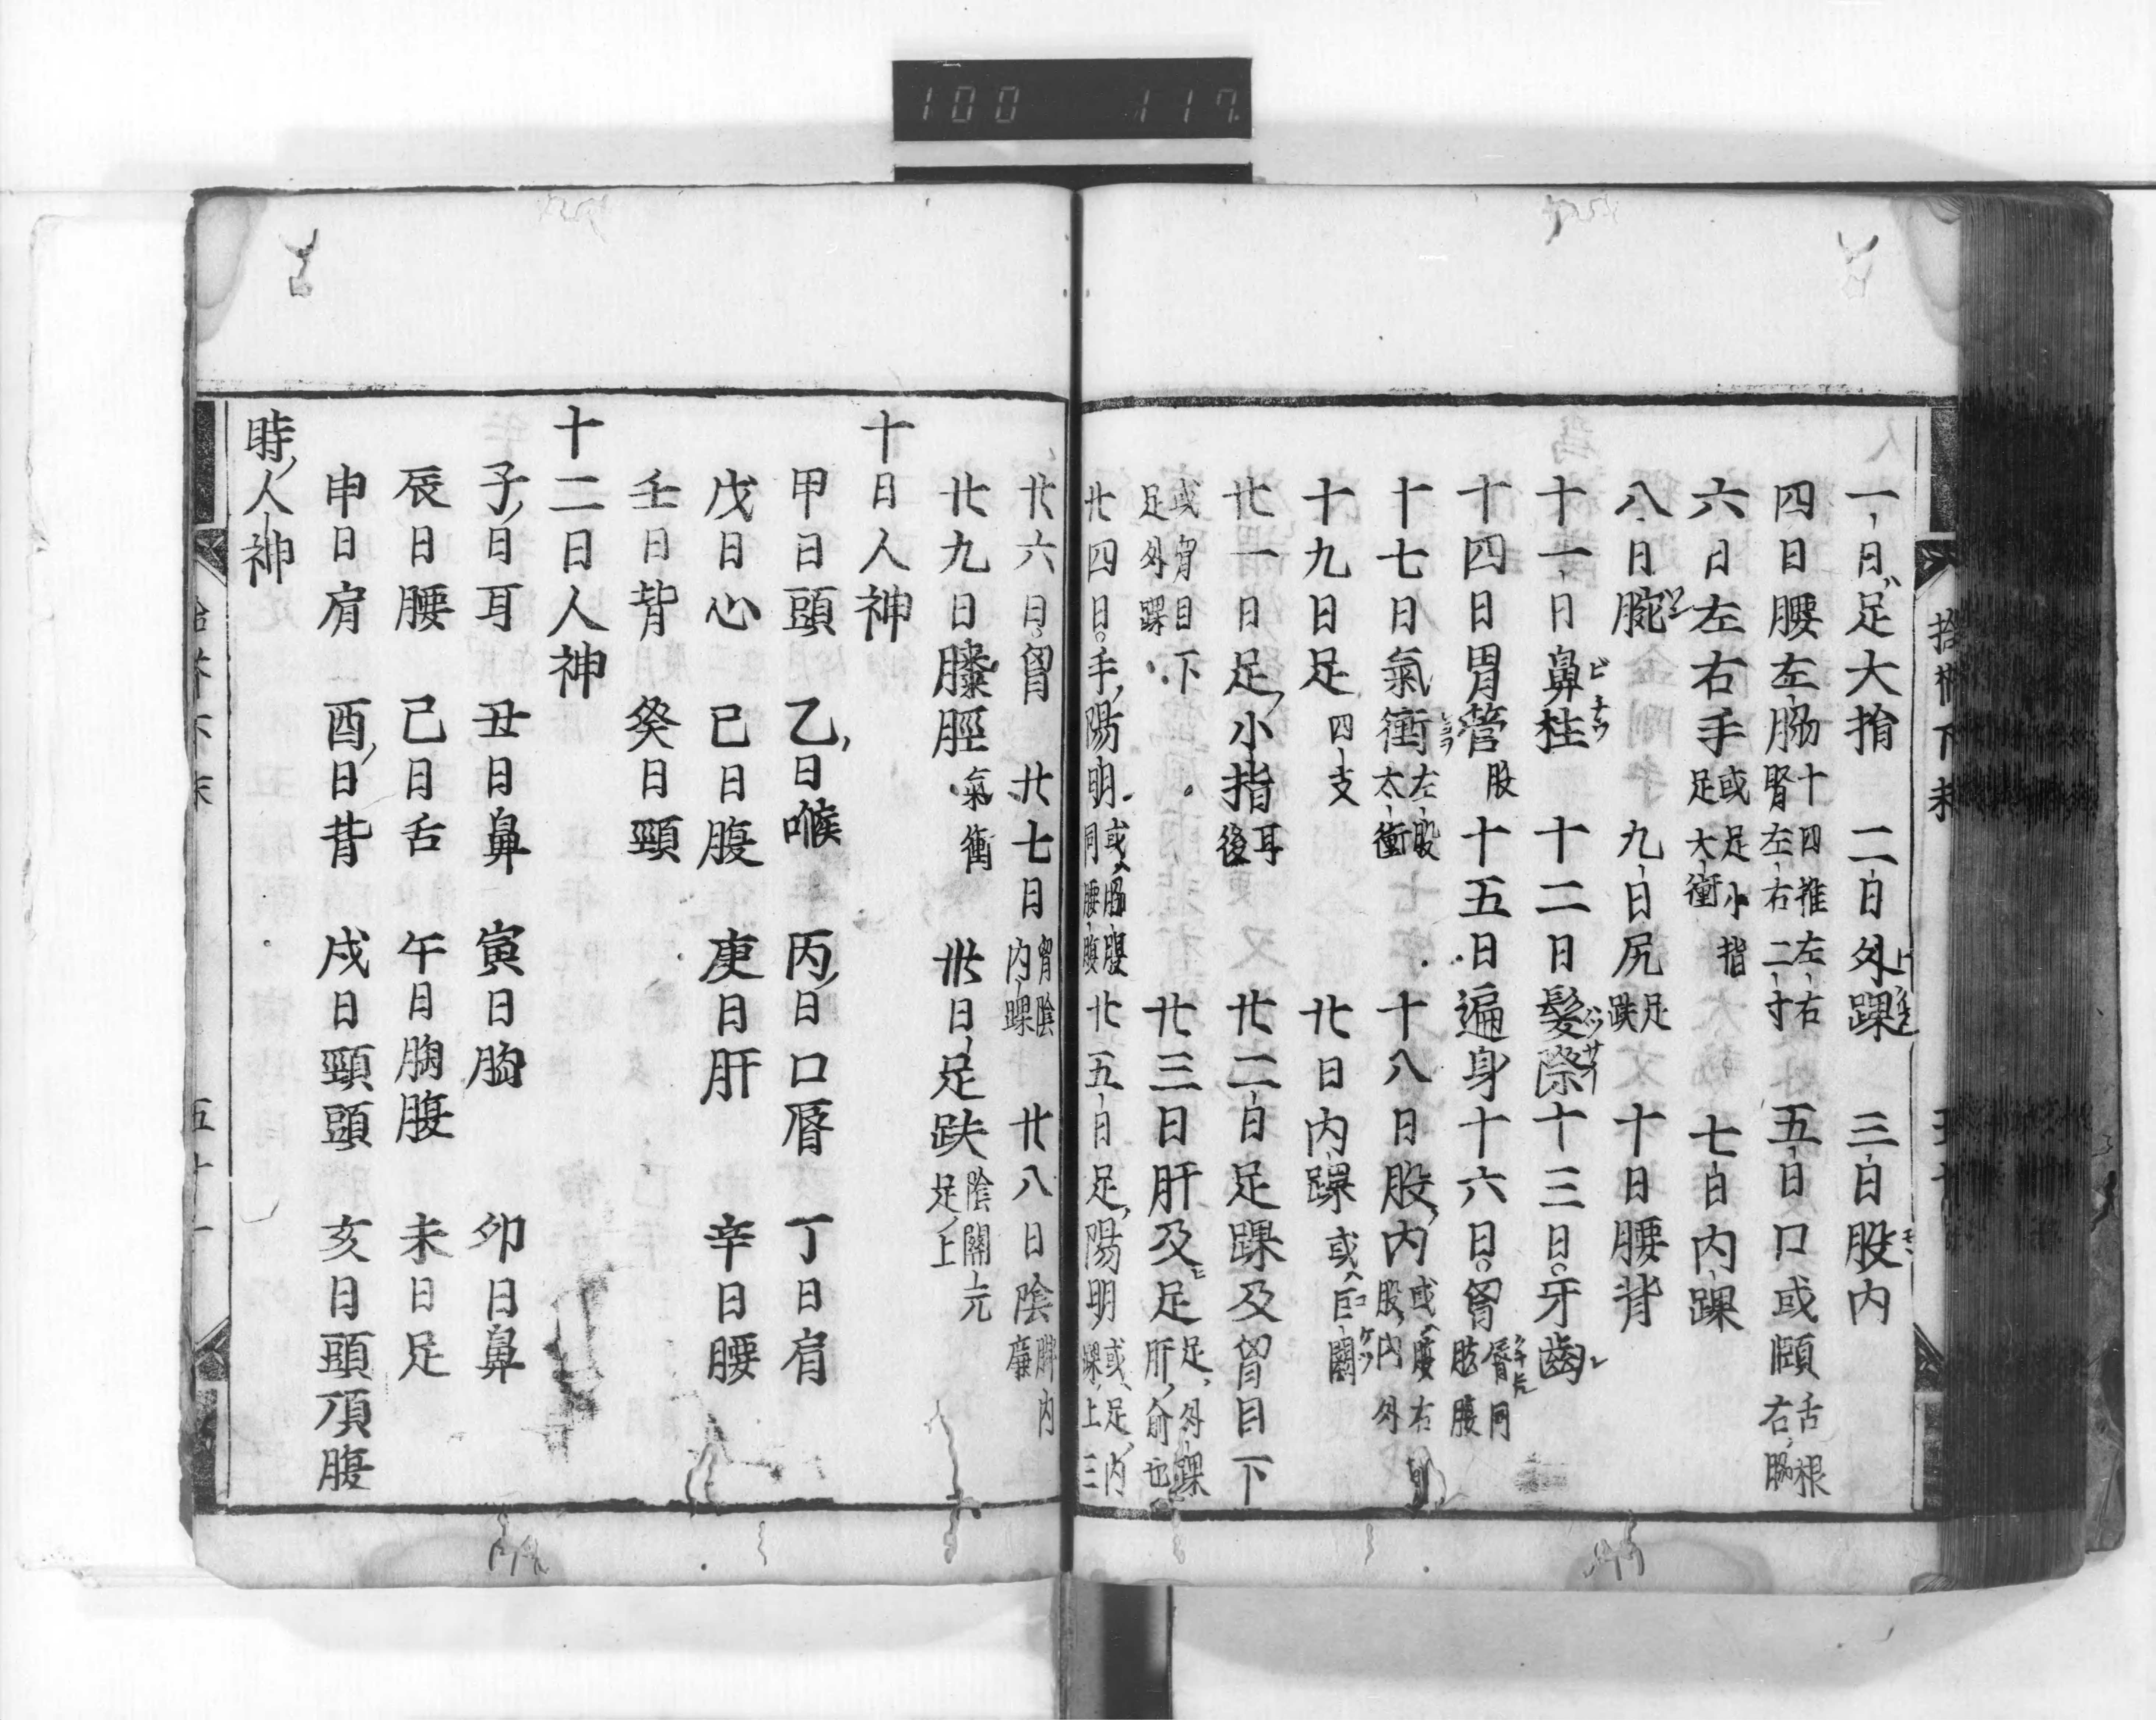 一日足大指 二日外踝 三日股内
四日腰左脇 十四推左右腎左右二寸 五日口或頤 舌根右脇
六日左右手 或足小指足大衝 七日内踝
八日腕 九日尻 足趺 十日腰背
十一日鼻柱 十二日髮際 十三日牙齒
十四日胃管 股 十五日遍身 十六日胷
十七日氣衝 左股太衝 十八日股内 股内外
十九日足 四支 廿日内踝 或巨闕
廿一日足小指 耳後 廿二日足踝及胷目下
或胷目下足外踝 廿三日肝及足 足外踝肝俞也
廿四日手陽明 或脇腹同腰腹 廿五日足陽明 或足内踝上三
廿六日胷 廿七日 胷陰内踝 廿八日陰 脾内廉
廿九日膝脛 氣衝 卅日足趺 陰關元足上
十日人神
甲日頭 乙日喉 丙日口脣 丁日肩
戊日心 己日腹 庚日肝 辛日腰
壬日背 癸日頸
十二日人神
子日耳 丑日鼻 寅日胸 卯日鼻
辰日腰 己日舌 午日胸腹 未日足
申日肩 酉日背 戌日頸頭 亥日頭項腹
時人神
五十一
100 117